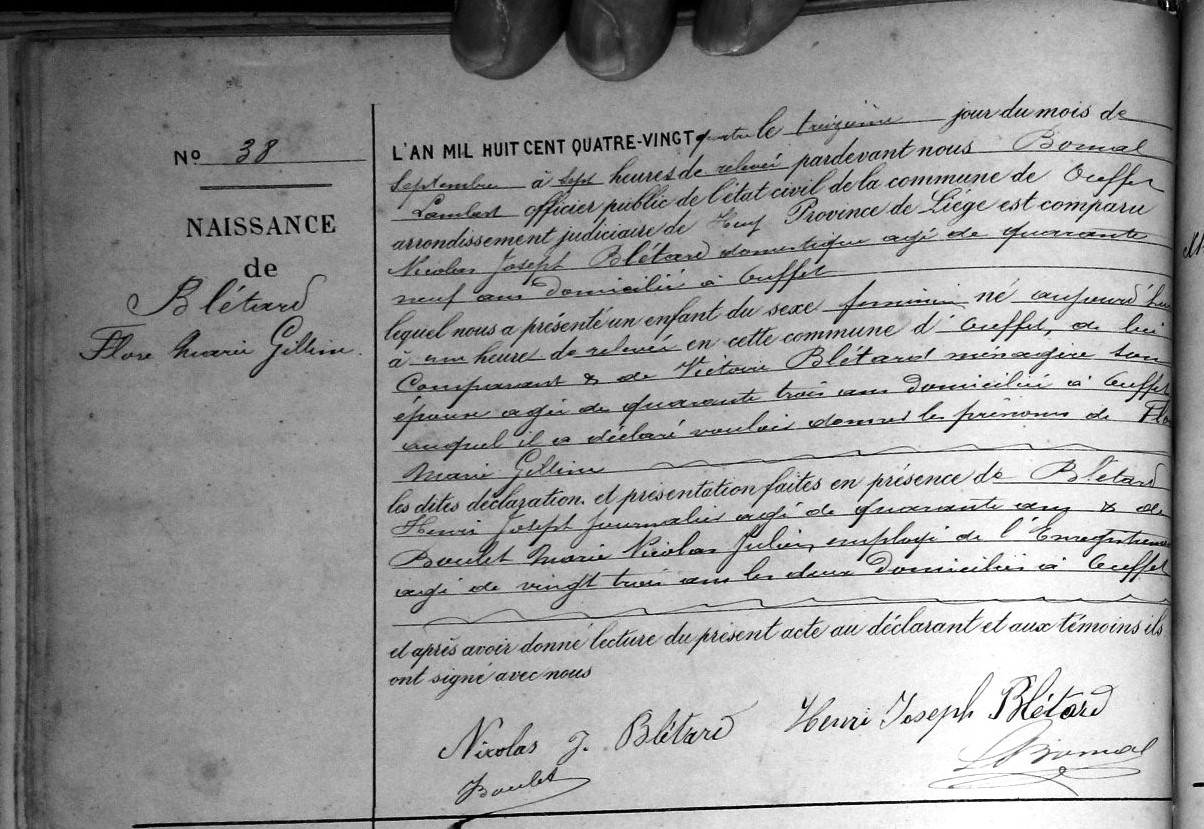 No 38
NAISSANCE
de
Blétard
Flore Marie
L'AN MIL HUIT CENT QUATRE-VINGT quatre le treizième jour du mois de
Septembre à sept heures de relevée pardevant nous Bomal
Lambert officier public de l'état civil de la commune de Ouffet
arrondissement judiciaire de Huy Province de Liége est comparu
Nicolas Joseph Blétard domestique agé de quarante
neuf ans domicilié à Ouffet
lequel nous a présenté un enfant du sexe feminin né aujourd'hui
à une heure de relevée en cette commune d'Ouffet, de lui
Comparant & de Victoire Blétard ménagère son
épouse agée de quarante trois ans domiciliée à Ouffet
auquel il a déclaré vouloir donner les prénoms de Flore
Marie
les dites déclaration et présentation faites en présence de Blétard
Henri Joseph journalier agé de quarante ans & de
Boulet Marie Nicolas Julien, employé de l'Enregistrement
agé de vingt trois ans les deux domiciliés à Ouffet
et après avoir donné lecture du présent acte au déclarant et aux témoins ils
ont signé avec nous
Nicolas J. Blétard Henri Joseph Blétard
Boulet L Bomal